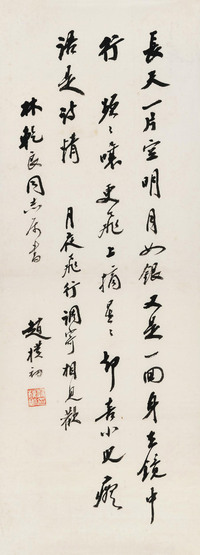 長天一片空明月如銀又是一回身在鏡中
行 頻〻嚷更飛上摘星〻却喜小兒癡
語是詩情 月夜飛行調寄相見歡
林乾良同志属書
趙樸初